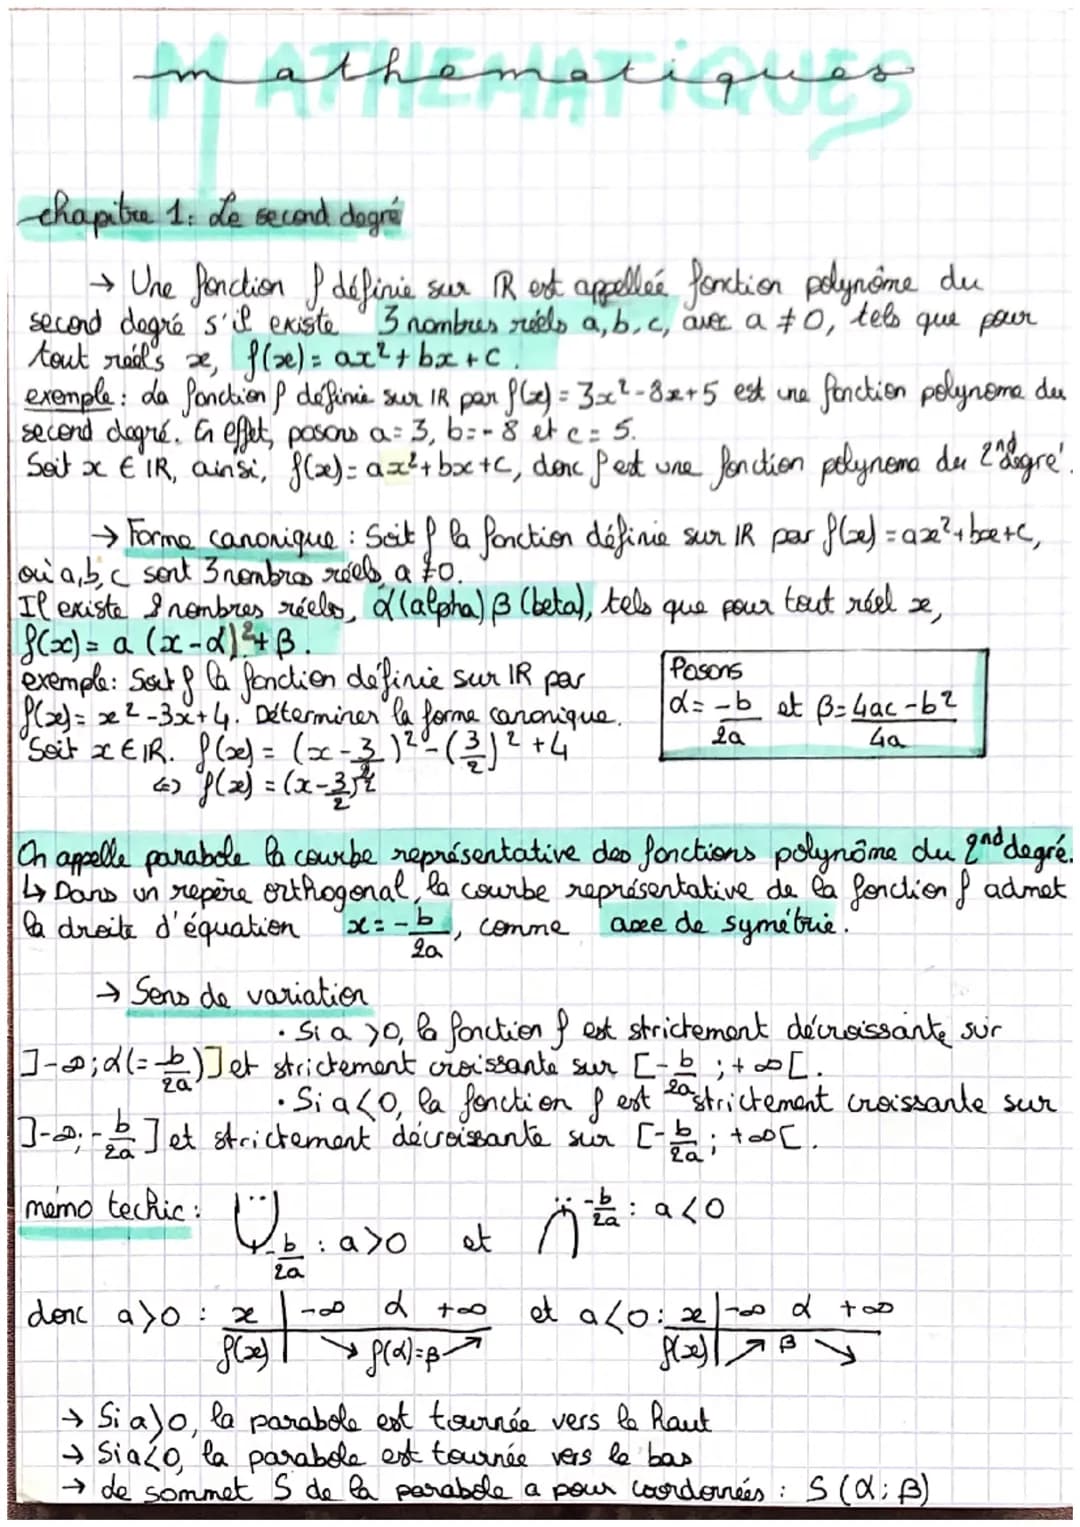 MATHEMATIQUES
mathematiques
chapitre 1: Le second degré
→ Une fonction f définie sur IR est appelleé fonction polynôme du
second degré s'il existe 3 nombres réels a, b, c, avec a ≠ 0, tels que pour
tout réels x, f(x) = ax² + bx + c.
exemple : La fonction f définie sur IR par f(x) = 3x² - 8x + 5 est une fonction polynome du
second degré. En effet, posons a = 3, b = - 8 et c = 5.
Soit x ∈ IR, ainsi, f(x) = ax² + bx + c, donc f est une fonction polynome du 2nd degré.
→ Forme canonique : Soit f la fonction définie sur IR par f(x) = ax² + bx + c,
où a, b, c sont 3 nombres réels a ≠ 0.
Il existe 2 nombres réels, α (alpha) β (beta), tels que pour tout réel x,
f(x) = a (x - α)² + β.
exemple : Soit f la fonction définie sur IR par
f(x) = x² - 3x + 4. Déterminer la forme canonique.
Soit x ∈ IR. f(x) = (x - 3/2)² - (3/2)² + 4
⇔ f(x) = (x - 3/2)²
Posons
α = -b/2a et β = 4ac - b²/4a
On appelle parabole la courbe représentative des fonctions polynôme du 2nd degré.
↳ Dans un repère orthogonal, la courbe représentative de la fonction f admet
la droite d'équation x = -b/2a, comme axe de symétrie.
→ Sens de variation
· Si a > 0, la fonction f est strictement décroissante sur
]-∞; α (= -b/2a)] et strictement croissante sur [-b/2a ; +∞[.
· Si a < 0, la fonction f est strictement croissante sur
]-∞; -b/2a] et strictement décroissante sur [-b/2a ; +∞[.
mémo techic : -b/2a : a > 0 et -b/2a : a < 0
donc a > 0 : x | -∞ α +∞ et a < 0 : x | -∞ α +∞
f(x) | ↘ f(α) = β ↗ f(x) | ↗ β ↘
→ Si a > 0, la parabole est tournée vers le haut
→ Si a < 0, la parabole est tournée vers le bas
→ de sommet S de la parabole a pour coordonnées : S (α ; β)